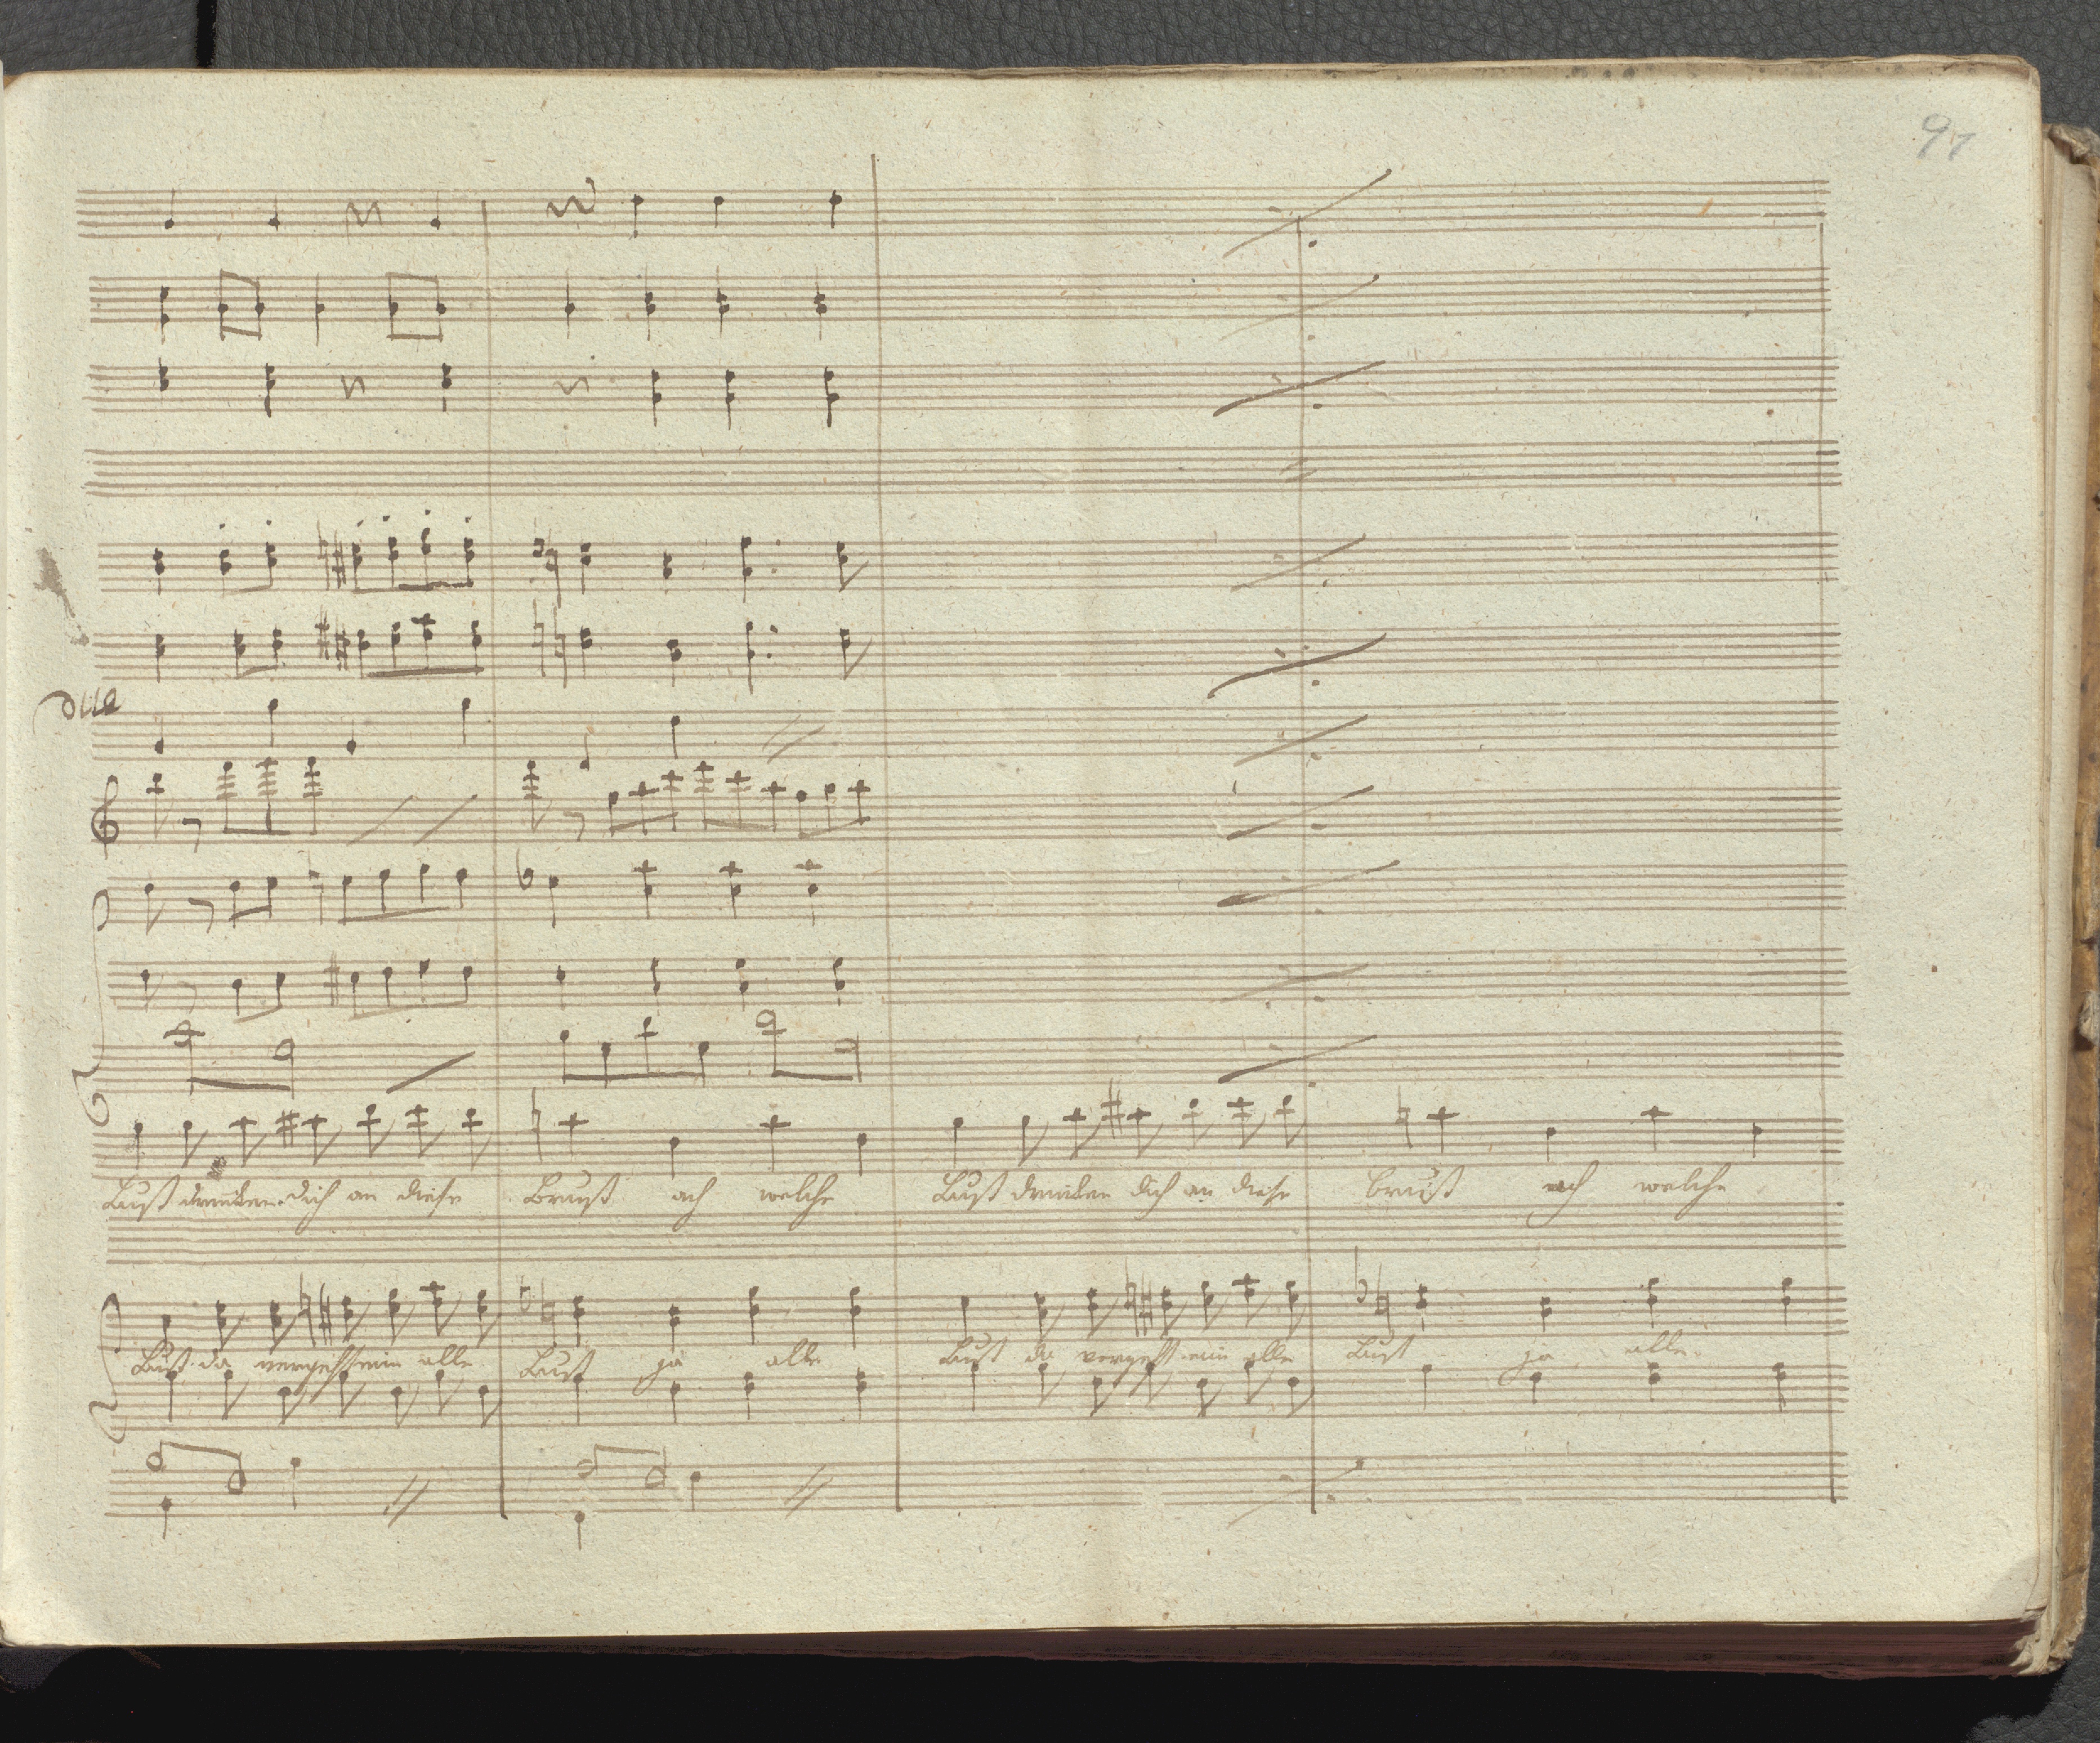 91
Lust drücken dich an diese Brust ach welche Lust drücken dich an diese brust ach welche
Lust da vergeht mir alle Lust ja alle Lust da vergeht mir alle Lust ja alle